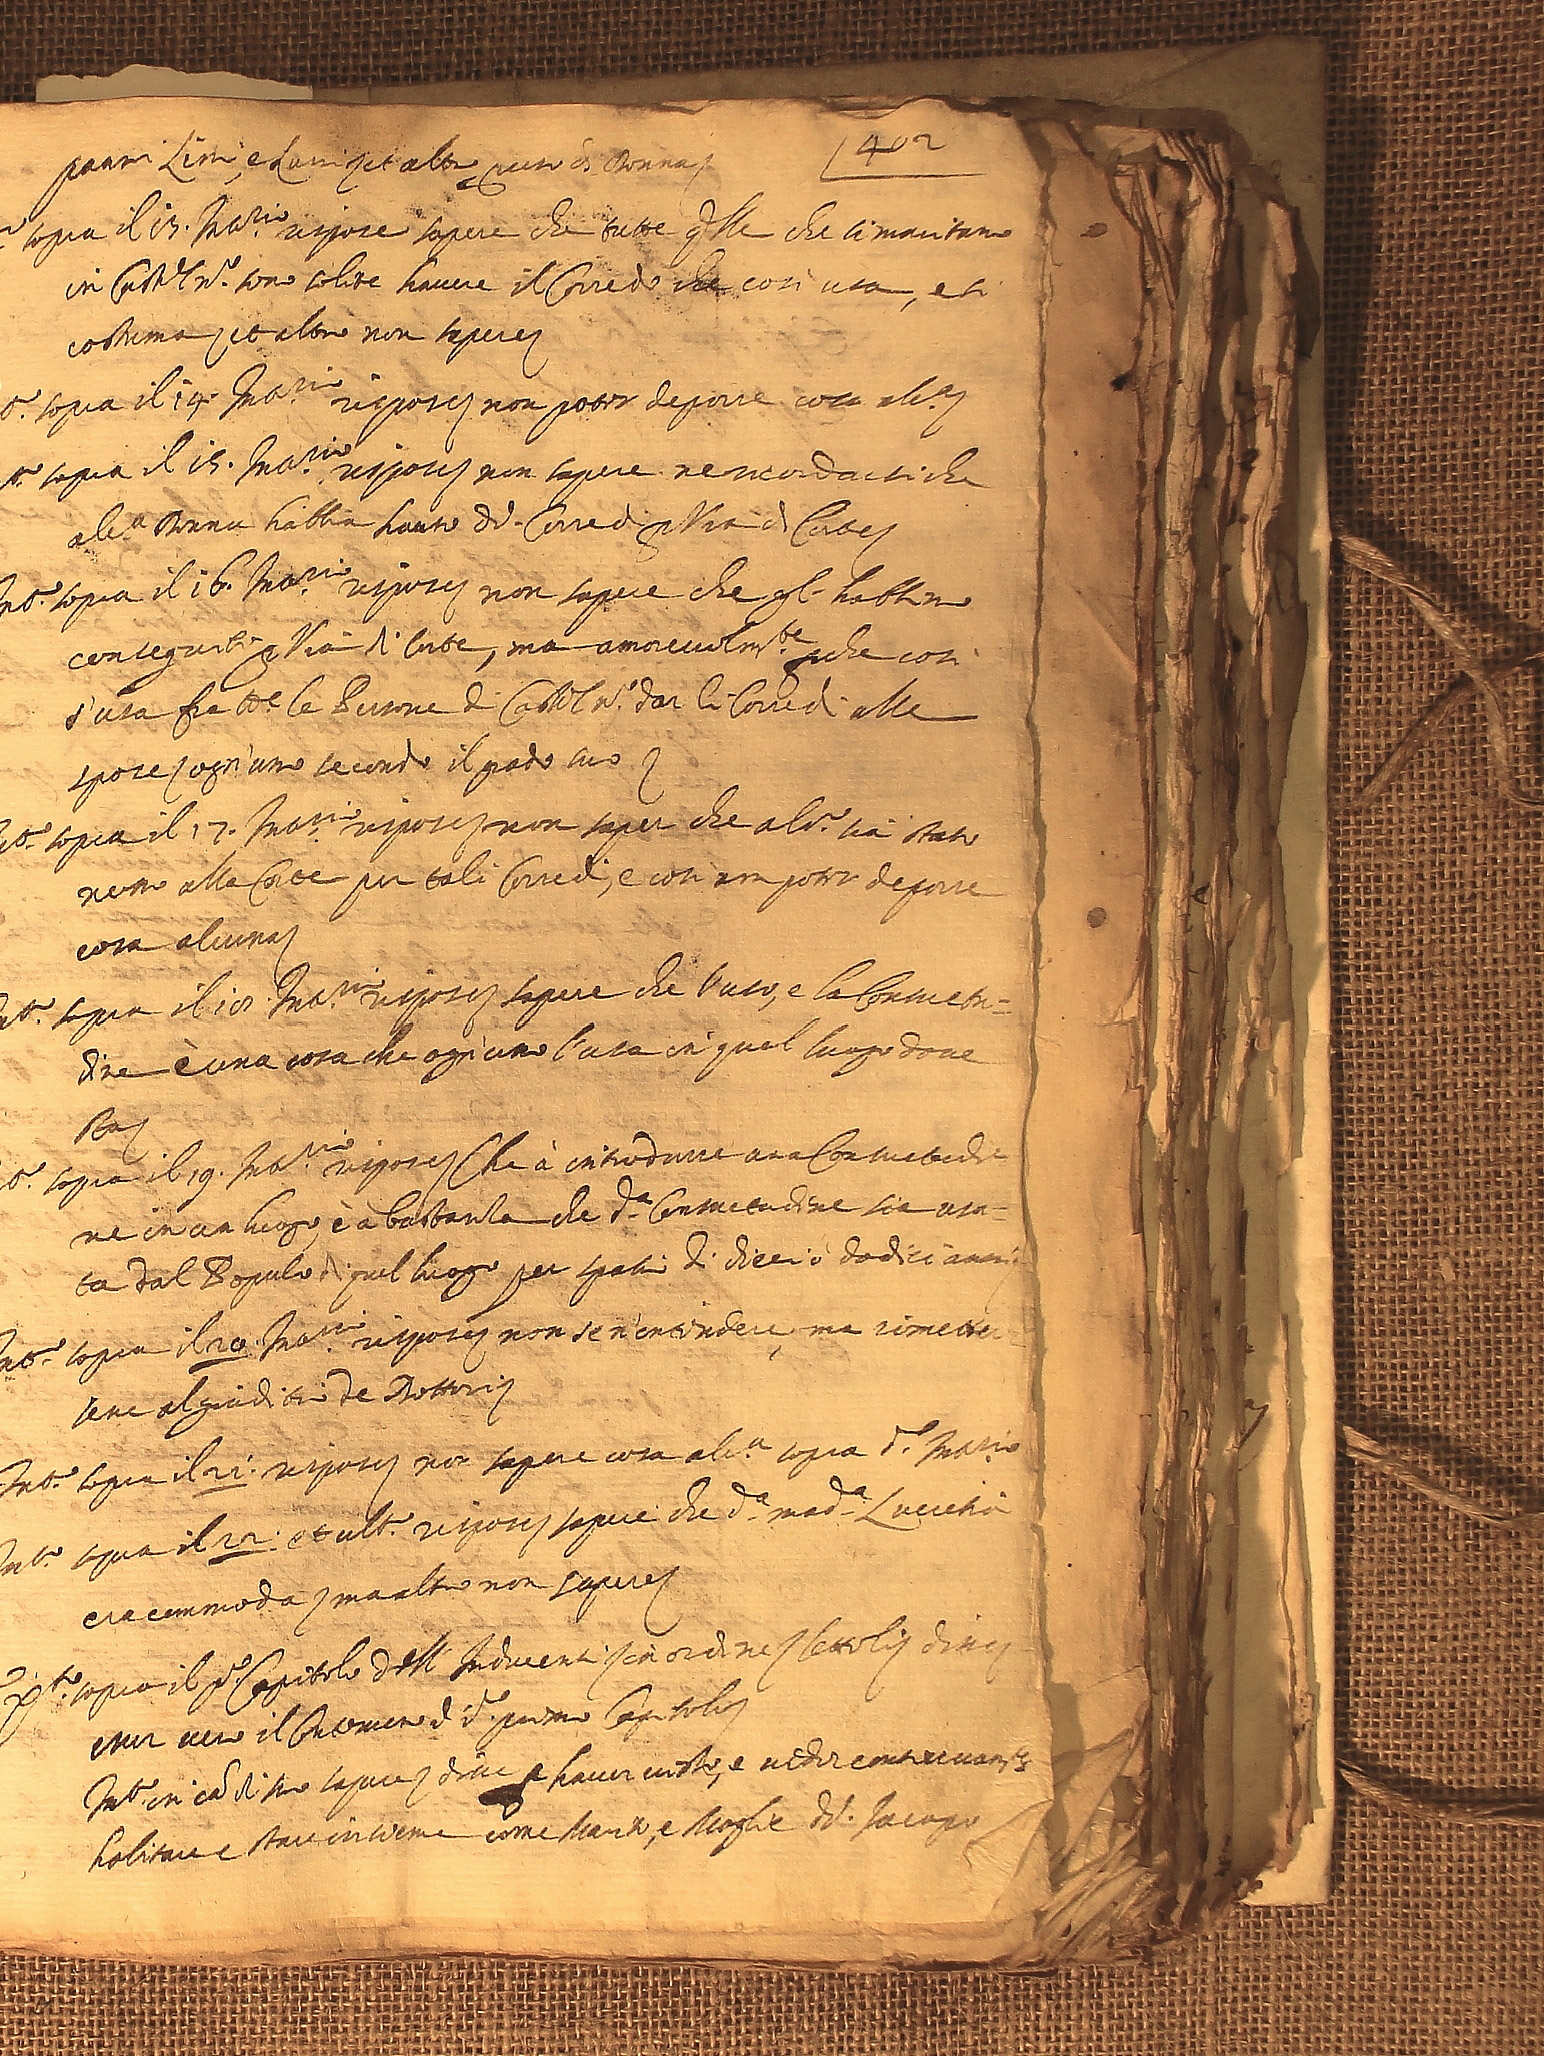 402
panni Lini, e Lani, et altro uso di Donna
sopra il 13. Inrio rispose sapere che tutte qlle che si maritano
in Castel no. sono solite havere il Corredo che così usa, e si
costuma, et altro non sapere
sopra il 14. Inrio rispose non poter deporre cosa alca
sopra il 15. Inrio rispose non sapere ne ricordarsi che
alca Donna habbia hauto dd. Corredi p Via di Corte
Into. sopra il 16. Inrio rispose non sapere che gl' habbino
conseguiti p Via di Corte, ma amorevolmte. pche così
s'usa fra tte le Persone di Castel no. dar li Corredi alle
spose, ogn'uno secondo il grado suo
Into. sopra il 17. Inrio rispose non saper che alco. sia stato
alla Corte per tali Corredi, e così non poter deporre
cosa alcuna
Into. sopra il 18. Inrio rispose sapere che l'uso, e la Consuetu=
dine è una cosa che ogn'uno l'usa in quel luogo dove
sta
sopra il 19. Inrio rispose Che à introdurre una Consuetudi
ne in un luogo, è a bastanza che da. Consuetudine sia usa=
ta dal Popolo di quel luogo per spatio di dieci ò dodici anni
Into. sopra il 20. Inrio rispose non se n'intendere, ma rimetter
sene al giuditio de Dottori
Into. sopra il 21. rispose non sapere cosa alca sopra do. Inrio
Into. sopra il 22. et ulto. rispose sapere che da. mada. Lucretia
era commoda, ma altro non sapere
sopra il po. Capitolo dell' Inducenti, in ordine, lettoli, disse
esser vero il Contenuto d do. primo Capitolo
Into. in ca. di suo sapere, disse p haver visto, e veder continuamte
habitare e stare insieme come Marito, e Moglie dd. Jacopo